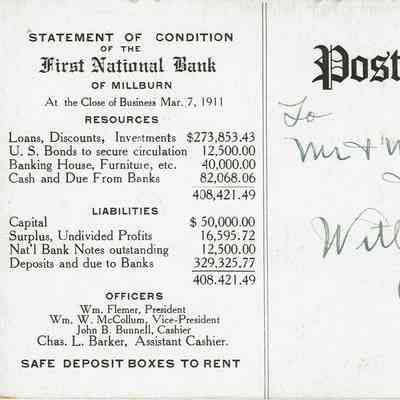 STATEMENT OF CONDITION
OF THE
First National Bank
OF MILLBURN
At the Close of Business Mar. 7, 1911
RESOURCES
Loans, Discounts, Investments $273,853.43
U. S. Bonds to secure circulation 12,500.00
Banking House, Furniture, etc. 40,000.00
Cash and Due From Banks 82,068.06
408,421.49
LIABILITIES
Capital $ 50,000.00
Surplus, Undivided Profits 16,595.72
Nat'l Bank Notes outstanding 12,500.00
Deposits and due to Banks 329,325.77
408.421.49
OFFICERS
Wm. Flemer, President
Wm. W. McCollum, Vice-President
John B. Bunnell, Cashier
Chas. L. Barker, Assistant Cashier.
SAFE DEPOSIT BOXES TO RENT
Post
To
Mr + M